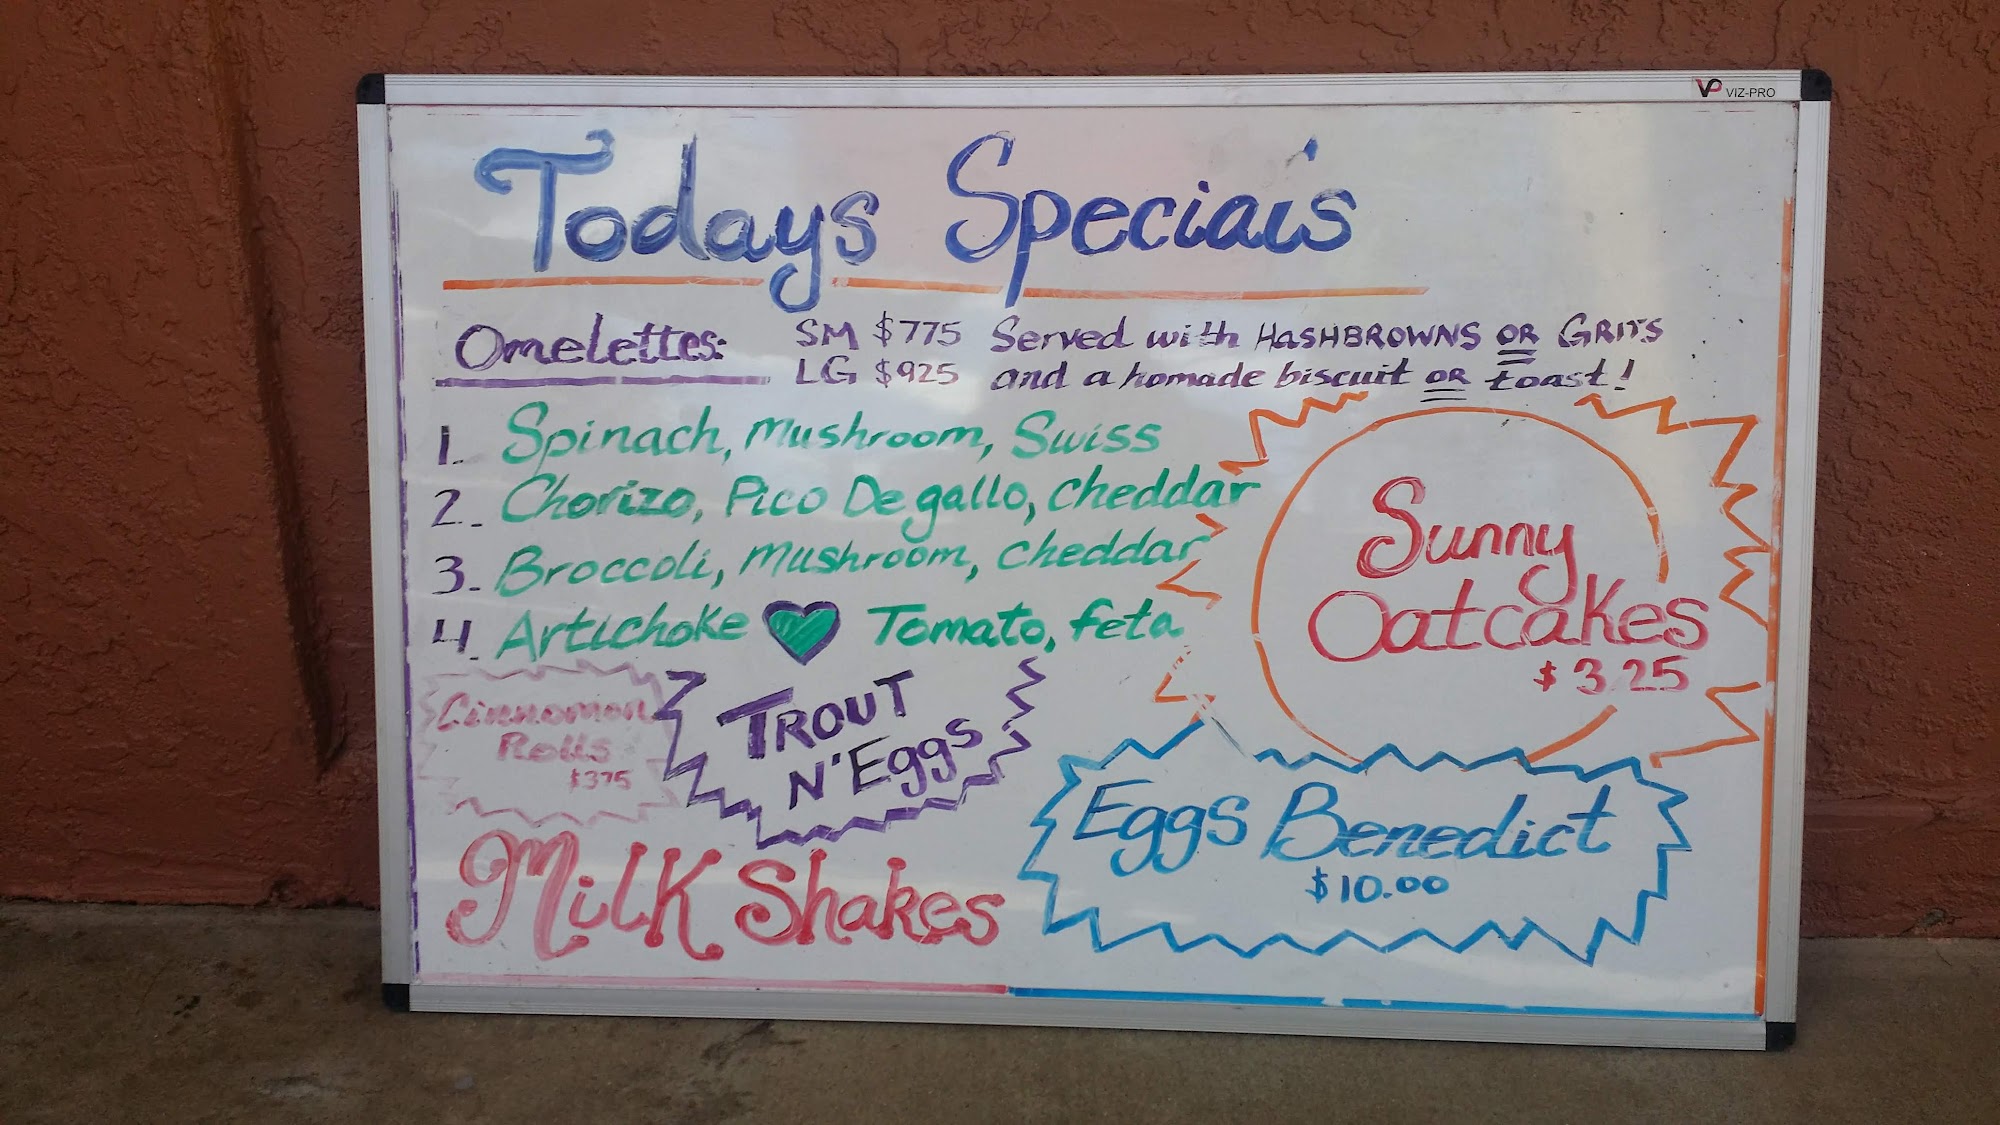 VP VIZ-PRO
Todays Specials
Omelettes: SM $775 Served with HASHBROWNS OR GRITS
LG $925 and a homade biscuit OR toast!
1. Spinach, Mushroom, Swiss
2. Chorizo, Pico De gallo, Cheddar
3. Broccoli, Mushroom, Cheddar
4. Artichoke Tomato, feta
Sunny
Oatcakes
$3.25
Cinnomon
Rolls
$375
TROUT
N' Eggs
Eggs Benedict
$10.00
Milk Shakes